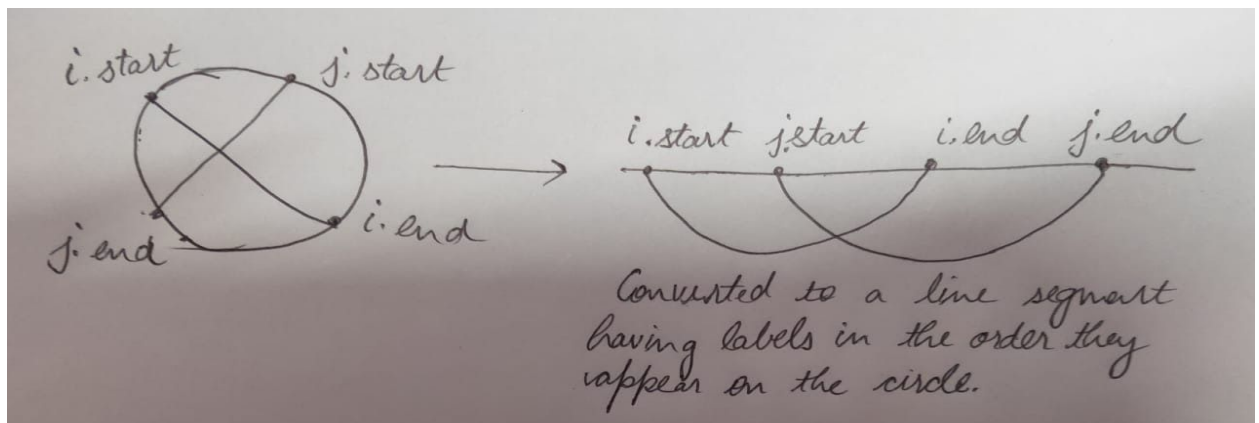 i.start
j.start
j.end
i.end
i.start j.start i.end j.end
Converted to a line segment
having labels in the order they
appear on the circle.